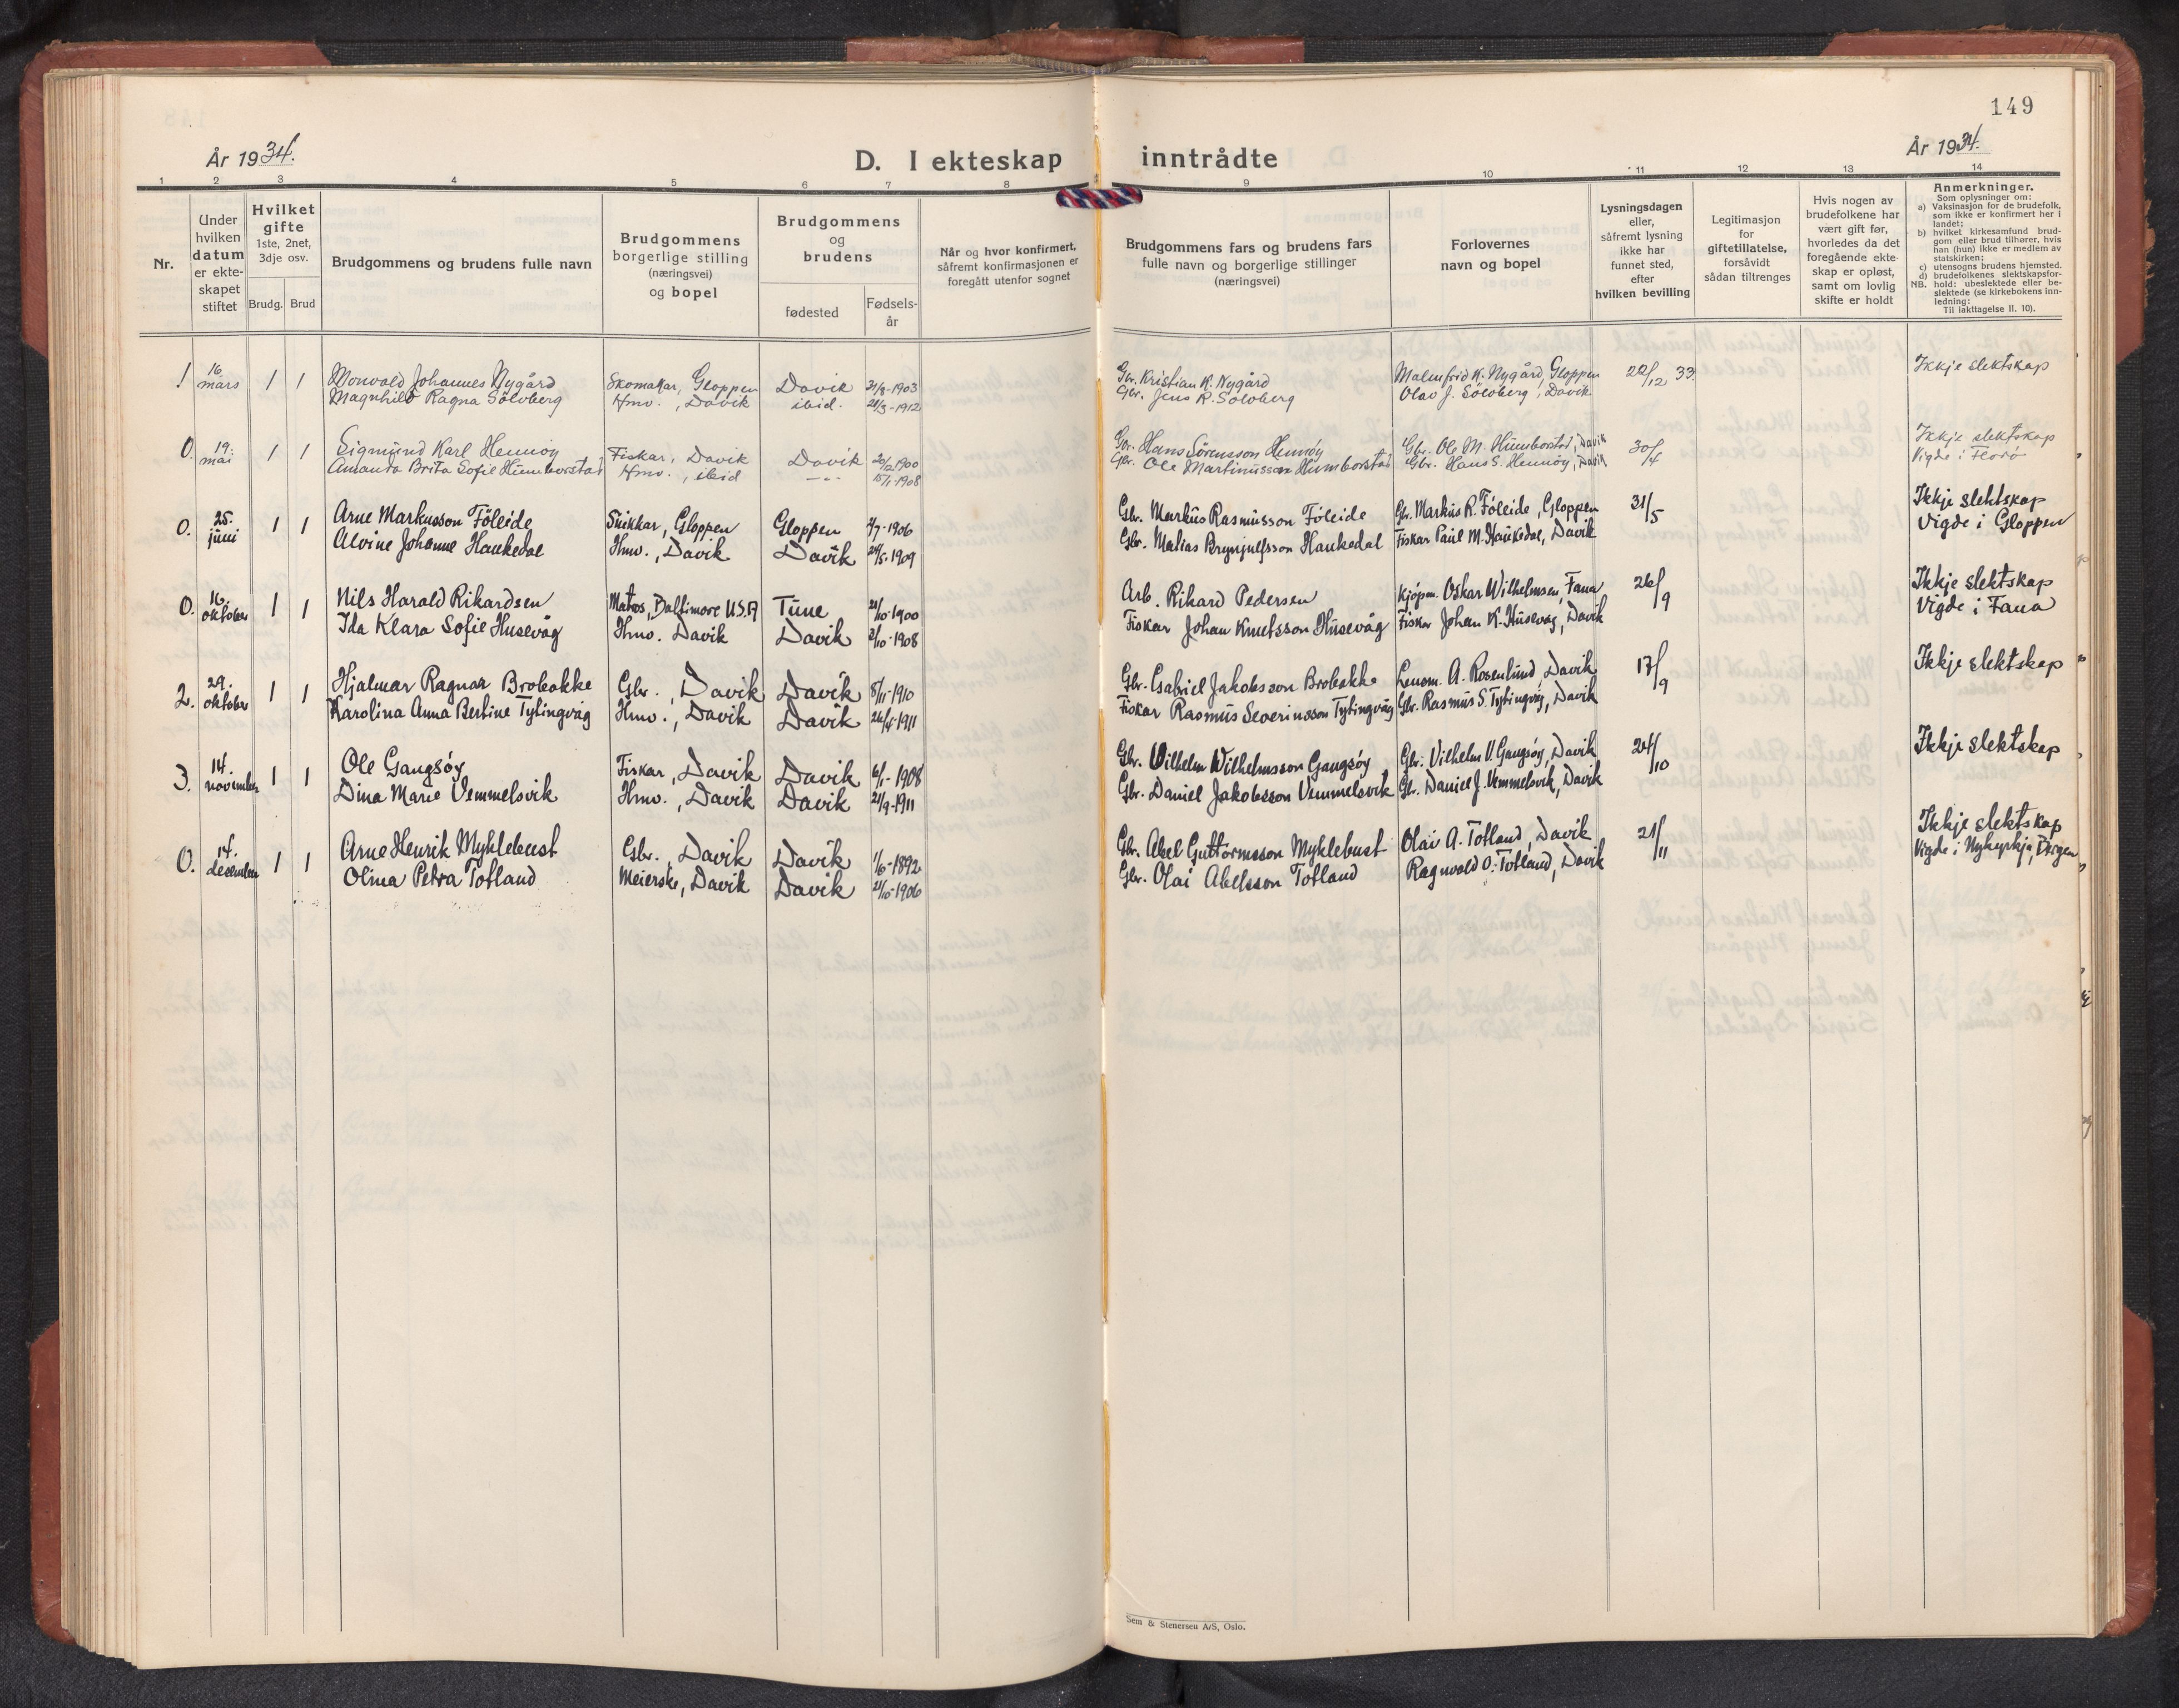 149
År 1934.
D. I ekteskap inntrådte
År 1934.
1 2 3 4 5 6 7 8 9 10 11 12 13 14
Nr.
Under hvilken datum er ekte-skapet stiftet
Hvilket gifte 1ste, 2net, 3dje osv.
Brudg. Brud
Brudgommens og brudens fulle navn
Brudgommens borgerlige stilling (næringsvei) og bopel
Brudgommens og brudens
fødested
Fødsels-år
Når og hvor konfirmert, såfremt konfirmasjonen er foregått utenfor sognet
Brudgommens fars og brudens fars fulle navn og borgerlige stillinger (næringsvei)
Forlovernes navn og bopel
Lysningsdagen eller, såfremt lysning ikke har funnet sted, efter hvilken bevilling
Legitimasjon for giftetillatelse, forsåvidt sådan tiltrenges
Hvis nogen av brudefolkene har vært gift før, hvorledes da det foregående ekte-skap er opløst, samt om lovlig skifte er holdt
Anmerkninger.
Som oplysninger om:
a) Vaksinasjon for de brudefolk, som ikke er konfirmert her i landet;
b) hvilket kirkesamfund brud-gom eller brud tilhører, hvis han (hun) ikke er medlem av statskirken;
c) utensogns brudens hjemsted.
d) brudefolkenes slektskapsfor-hold: ubeslektede eller be-slektede (se kirkebokens inn-ledning:
NB. Til iakttagelse II. 10).
1 16. mars 1 1 Monvald Johannes Nygård Skomakar, Gloppen Davik 21/8-1903 Gbr. Kristian K. Nygård Malmfrid K. Nygård, Gloppen 22/12 33. Ikkje slektskap
Magnhild Ragna Sölvberg Hmv., Davik ibid. 21/3-1912 Gbr. Jens R. Sölvberg Olav J. Sölvberg, Davik
0. 19. mai 1 1 Sigmund Karl Hennöy Fiskar, Davik Davik 20/12 1900 Gbr. Hans Sörensson Hennöy Gbr. Ole M. Humborstad, Davik 30/4 Ikkje slektskap
Amanda Brita Sofie Humborstad Hmv., ibid -"- 15/1-1908 Gbr. Ole Martinusson Humborstad Gbr. Hans S. Hennöy, Davik Vigde i Florö
0. 25. juni 1 1 Arne Markusson Föleide Snikkar, Gloppen Gloppen 2/7-1906 Gbr. Markus Rasmusson Föleide Gbr. Markus R. Föleide, Gloppen 31/5 Ikkje slektskap
Alvine Johanne Haukedal Hmv., Davik Davik 24/5-1909 Gbr. Matias Brynjulfsson Haukedal Fiskar Paul M. Haukedal, Davik Vigde i Gloppen
0. 16. oktober 1 1 Nils Harald Rikardsen Matros, Baltimore U.S.A Tune 21/10-1900 Arb. Rikard Pedersen Kjöpm. Oskar Wilhelmsen, Fana 26/9 Ikkje slektskap
Ida Klara Sofie Husevåg Hmv. Davik Davik 2/10-1908 Fiskar Johan Knutsson Husevåg Fiskar Johan K. Husevåg, Davik Vigde i Fana
2. 29. oktober 1 1 Hjalmar Ragnar Brobakke Gbr., Davik Davik 8/11-1910 Gbr. Gabriel Jakobsson Brobakke Lensm. A. Rosenlund, Davik 17/9 Ikkje slektskap
Karolina Anna Bertine Tytingvåg Hmv., Davik Davik 26/4-1911 Fiskar Rasmus Severinsson Tytingvåg Gbr. Rasmus S. Tytingvåg, Davik
3. 14. november 1 1 Ole Gangsöy Fiskar, Davik Davik 6/1-1908 Gbr. Vilhelm Wilhelmsson Gangsöy Gbr. Vilhelm V. Gangsöy, Davik 24/10 Ikkje slektskap
Dina Marie Vemmelsvik Hmv., Davik Davik 21/9-1911 Gbr. Daniel Jakobsson Vemmelsvik Gbr. Daniel J. Vemmelsvik, Davik
0. 14. desember 1 1 Arne Henrik Myklebust Gbr., Davik Davik 1/6-1892 Gbr. Abel Guttormsson Myklebust Olai A. Totland, Davik 21/11 Ikkje slektskap
Olina Petra Totland Meierske, Davik Davik 21/10-1906 Gbr. Olai Abelsson Totland Ragnvald O. Totland, Davik Vigde i Nykyrkja, Bergen
Sem & Stenersen A/S, Oslo.